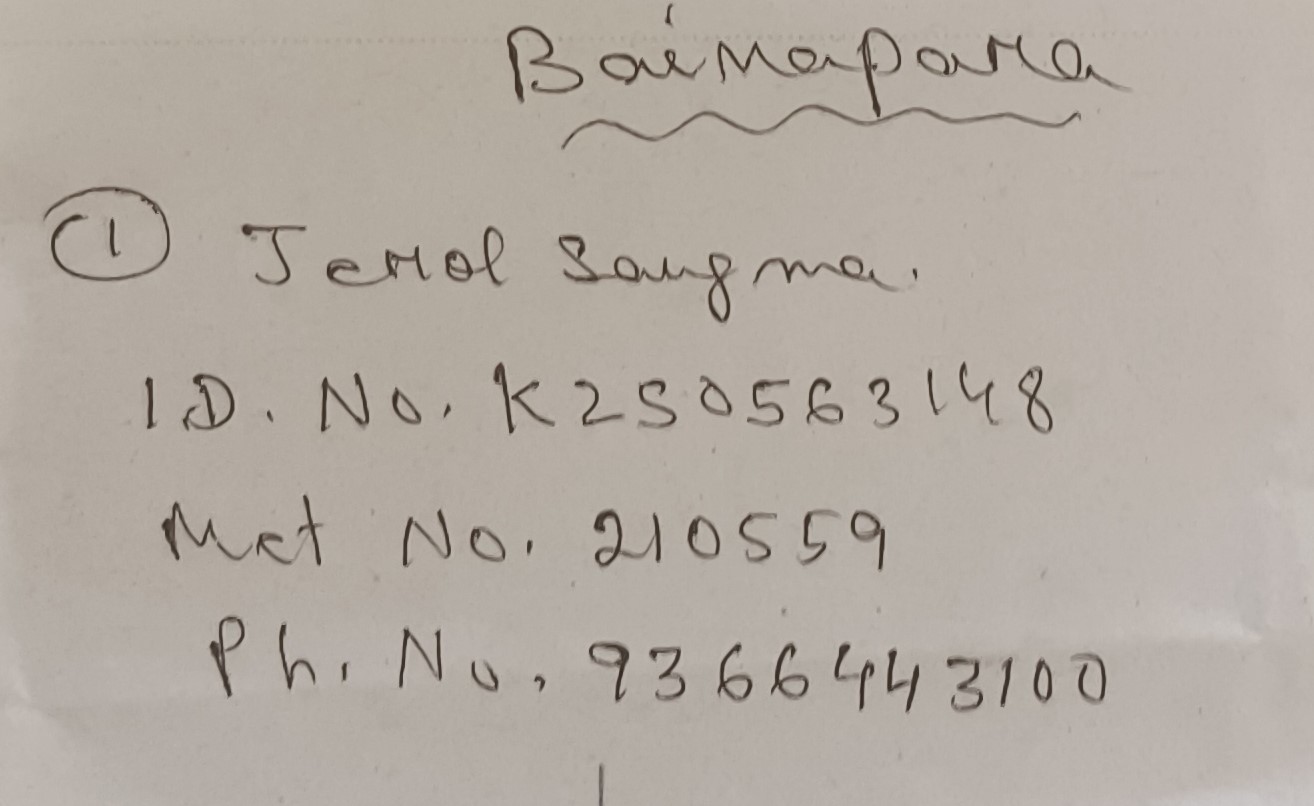 Bairapara
① Jerol Sangma.
ID. No. K250563148
Met No. 210559
Ph. No. 9366443100